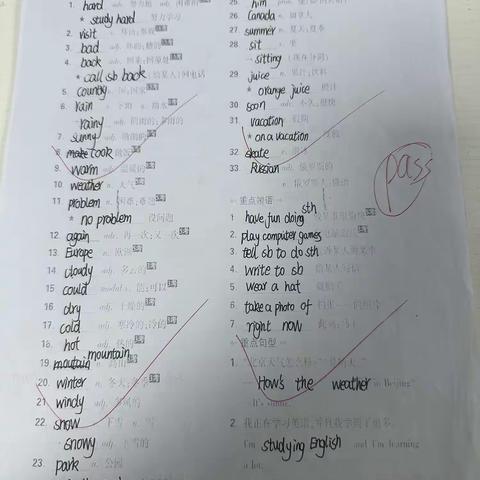 1. hard
* study hard 努力学习
2. visit
3. bad adj.
4. back
* call sb back
5. country n.
6. rain
rainy adj.
7. sunny adj.
8. took
9. warm adj.
10. weather n. 天气
11. problem n.
* no problem 没问题
12. again adv. 再一次;又一次
13. Europe n. 欧洲
14. cloudy adj. 多云的
15. could modal v. 能;可以
16. dry adj. 干燥的
17. cold adj. 寒冷的;冷的
18. hot adj. 热的
19. mountain n. 高山
20. winter n. 冬天;冬季
21. windy adj.
22. snow
snowy adj. 下雪的
23. park n. 公园
25. him
26. Canada n. 加拿大
27. summer n. 夏天;夏季
28. sit v. 坐
sitting
29. juice n. 果汁;饮料
* orange juice 橙汁
30. soon adv. 不久;很快
31. vacation n. 假期
* on a vacation
32. skate v.
33. Russian adj. 俄罗斯的
n. 俄罗斯人;俄语
pass
重点短语
1. have fun doing sth
2. play computer games
3. tell sb to do sth
4. write to sb 给某人写信
5. wear a hat
6. take a photo of
7. right now
重点句型
1. 北京天气怎么样?
How's the weather in Beijing?
It's sunny.
2. 我正在学习英语,
I'm studying English and I'm learning
a lot.